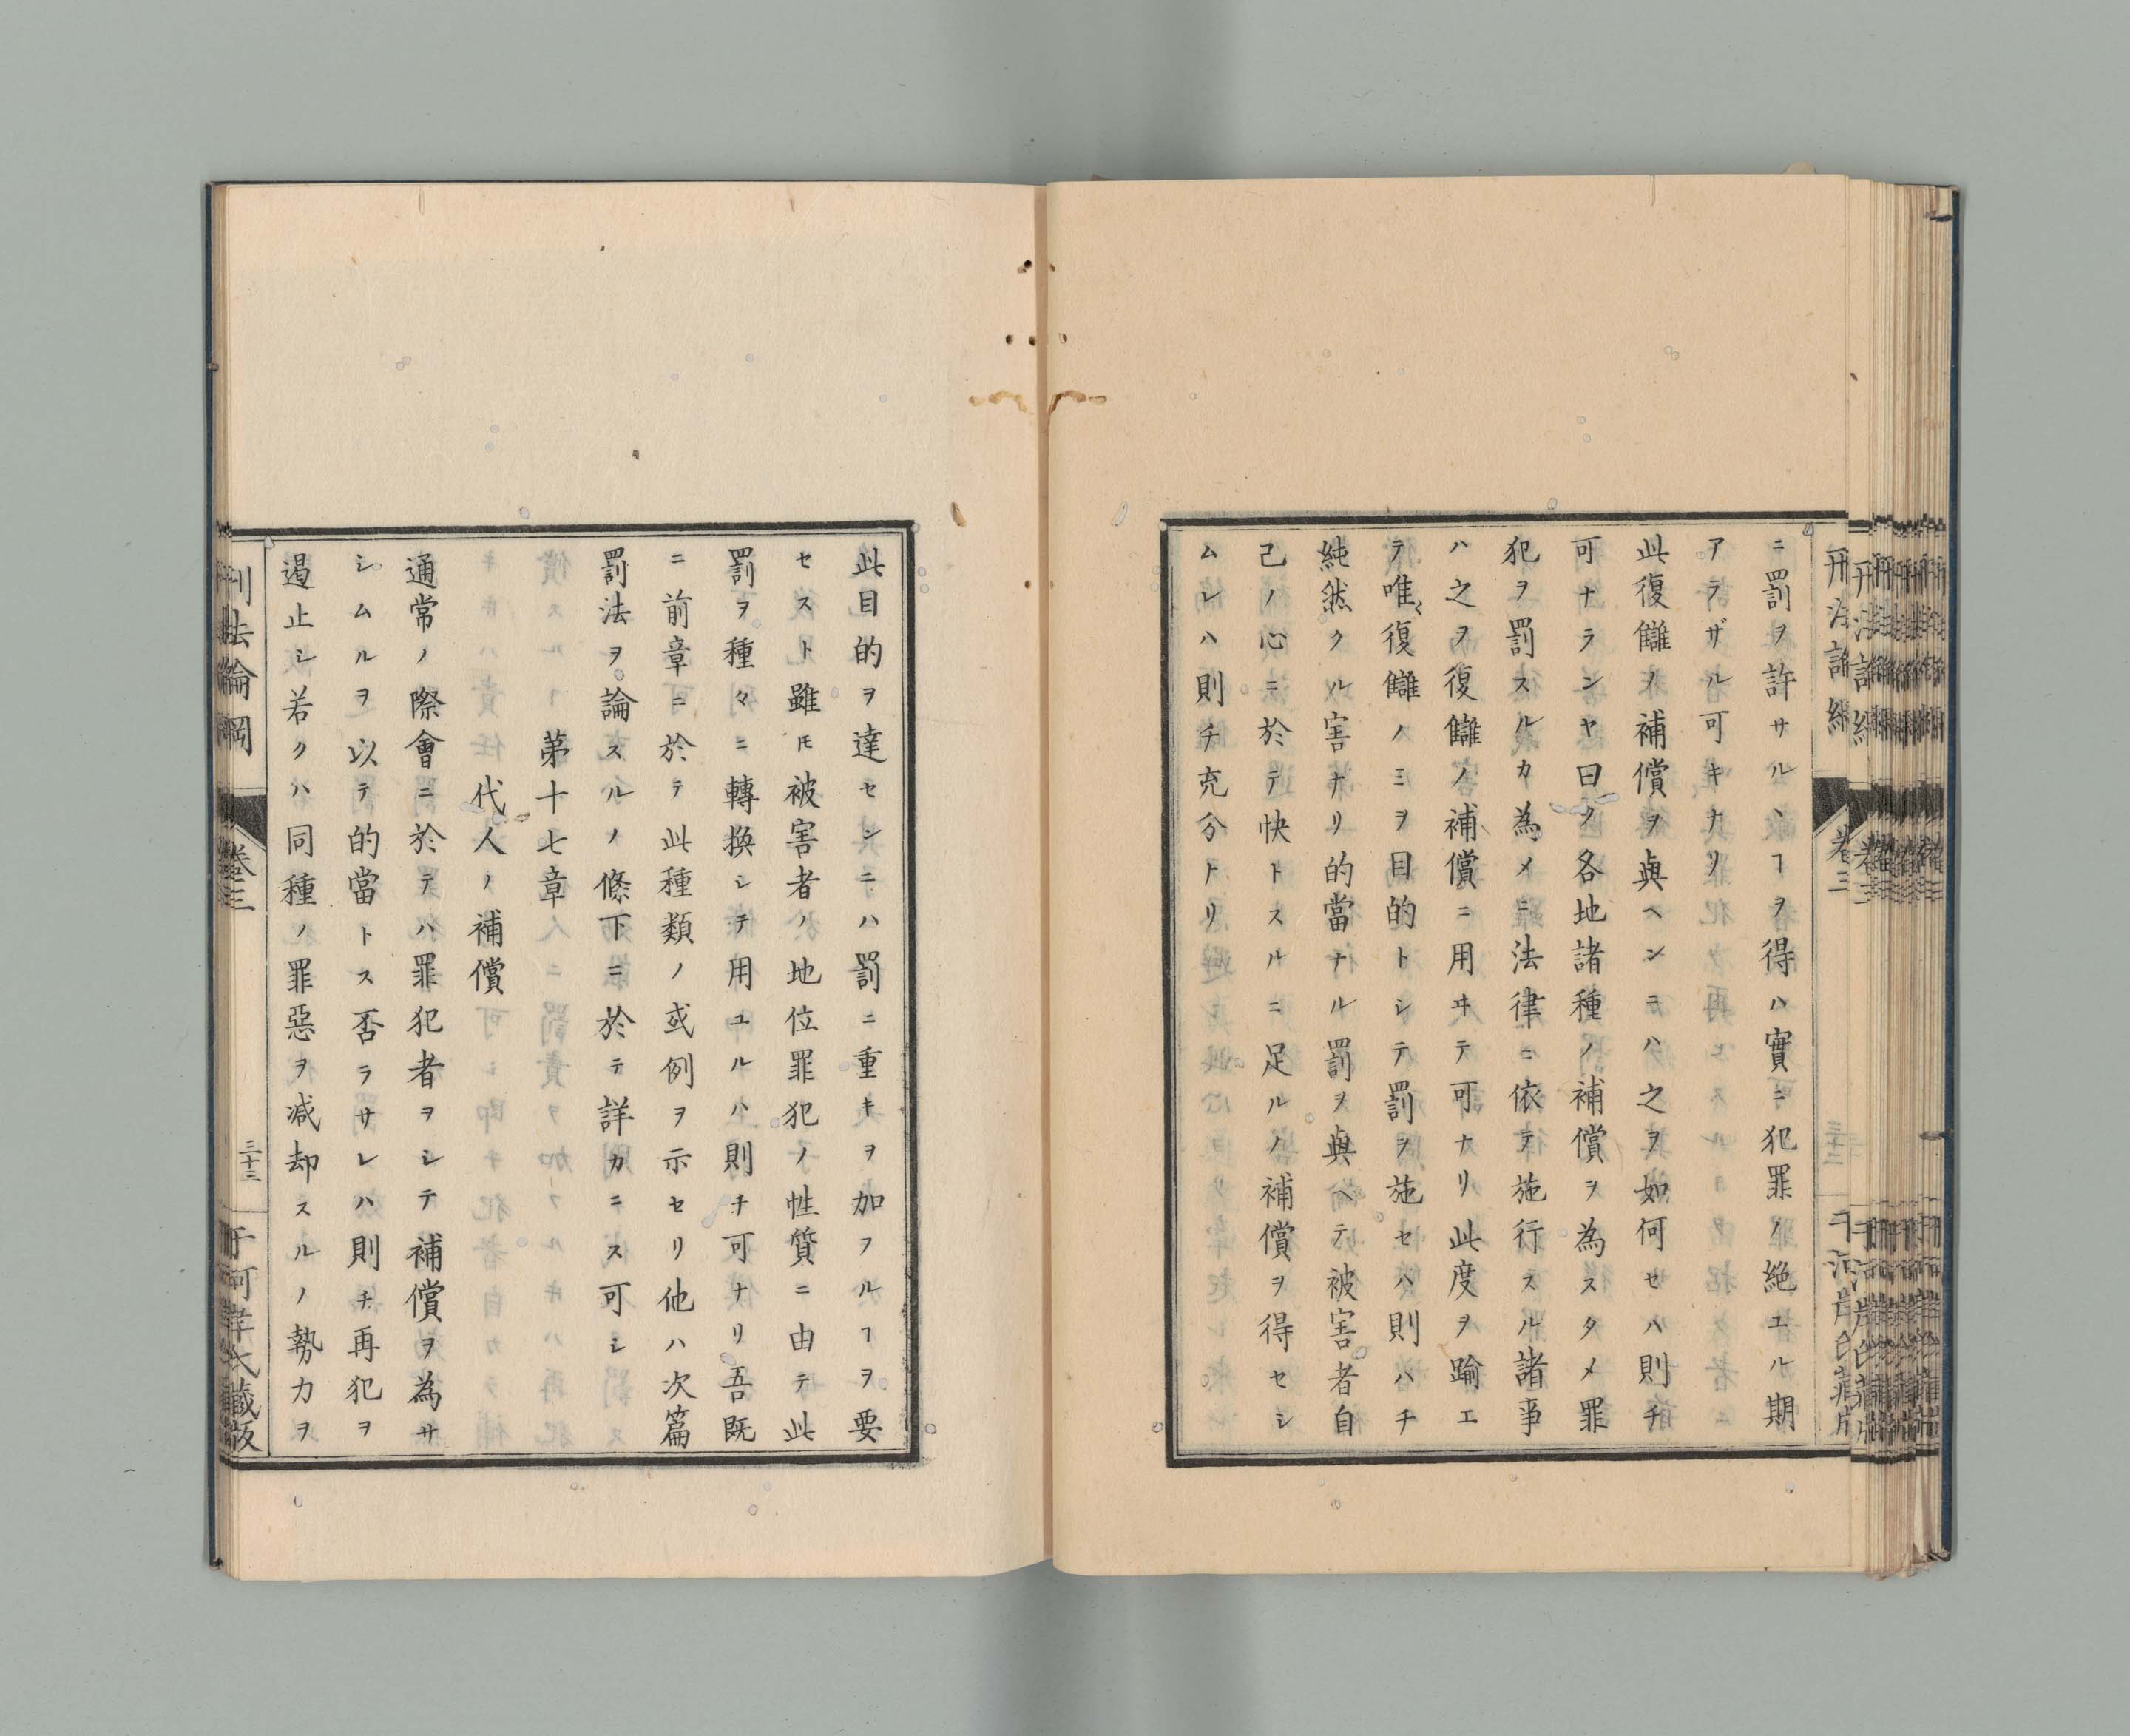 ニ罰ヲ許サルヽヿヲ得ハ實ニ犯罪ノ絶ユル期
アラザル可キナリ
此復讎ノ補償ヲ與ヘンニハ之ヲ如何セハ則チ
可ナランヤ曰ク各地諸種ノ補償ヲ為スタメ罪
犯ヲ罰スルカ為メニ法律ニ依テ施行スル諸事
ハ之ヲ復讎ノ補償ニ用ヰテ可ナリ此度ヲ踰エ
テ唯復讎ノミヲ目的トシテ罰ヲ施セハ則ハチ
純然タル害ナリ的當ナル罰ヲ與ヘテ被害者自
己ノ心ニ於テ快トスルニ足ルノ補償ヲ得セシ
ムレハ則チ充分トリ
此目的ヲ達センニハ罰ニ重キヲ加フルヿヲ要
セスト雖𪜈被害者ノ地位罪犯ノ性質ニ由テ此
罰ヲ種々ニ轉換シテ用ユルハ則チ可ナリ吾既
ニ前章ニ於テ此種類ノ或例ヲ示セリ他ハ次篇
罰法ヲ論スルノ條下ニ於テ詳カニス可シ
第十七章
代人ノ補償
通常ノ際會ニ於テハ罪犯者ヲシテ補償ヲ為サ
シムルヲ以テ的當トス否ラサレハ則チ再犯ヲ
遏止シ若クハ同種ノ罪惡ヲ减却スルノ勢力ヲ
刑法論綱
卷三
三十三
于河岸氏藏版